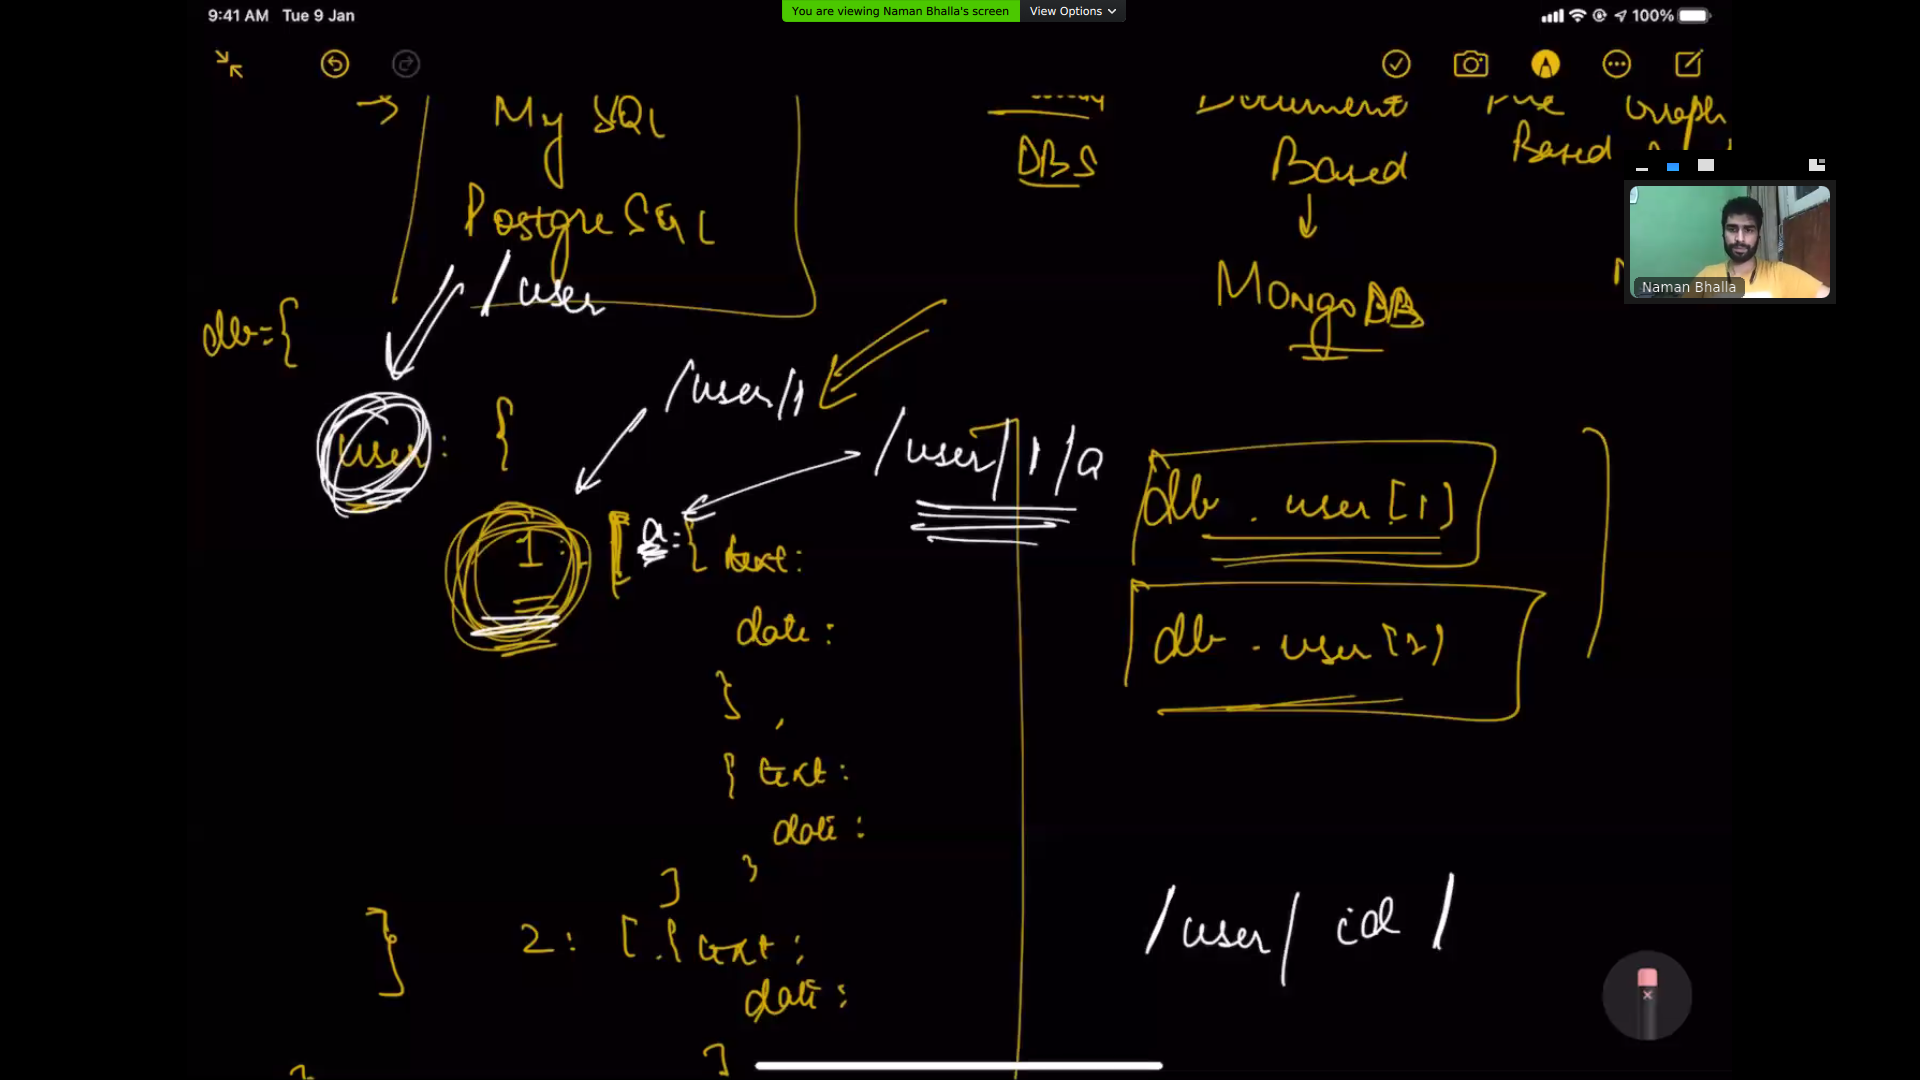 9:41 AM Tue 9 Jan
You are viewing Naman Bhalla's screen View Options
100%
My SQL
PostgreSQL
DBS
Document
Based
MongoDB
Based
Graph
Naman Bhalla
/user
db={
user: {
/user/1
/user/1/a
1: [ a: { text:
date:
} ,
{ text:
date:
}
]
2: [ { text:
date:
]
}
}
db . user[1]
db . user[2]
/user/ id /